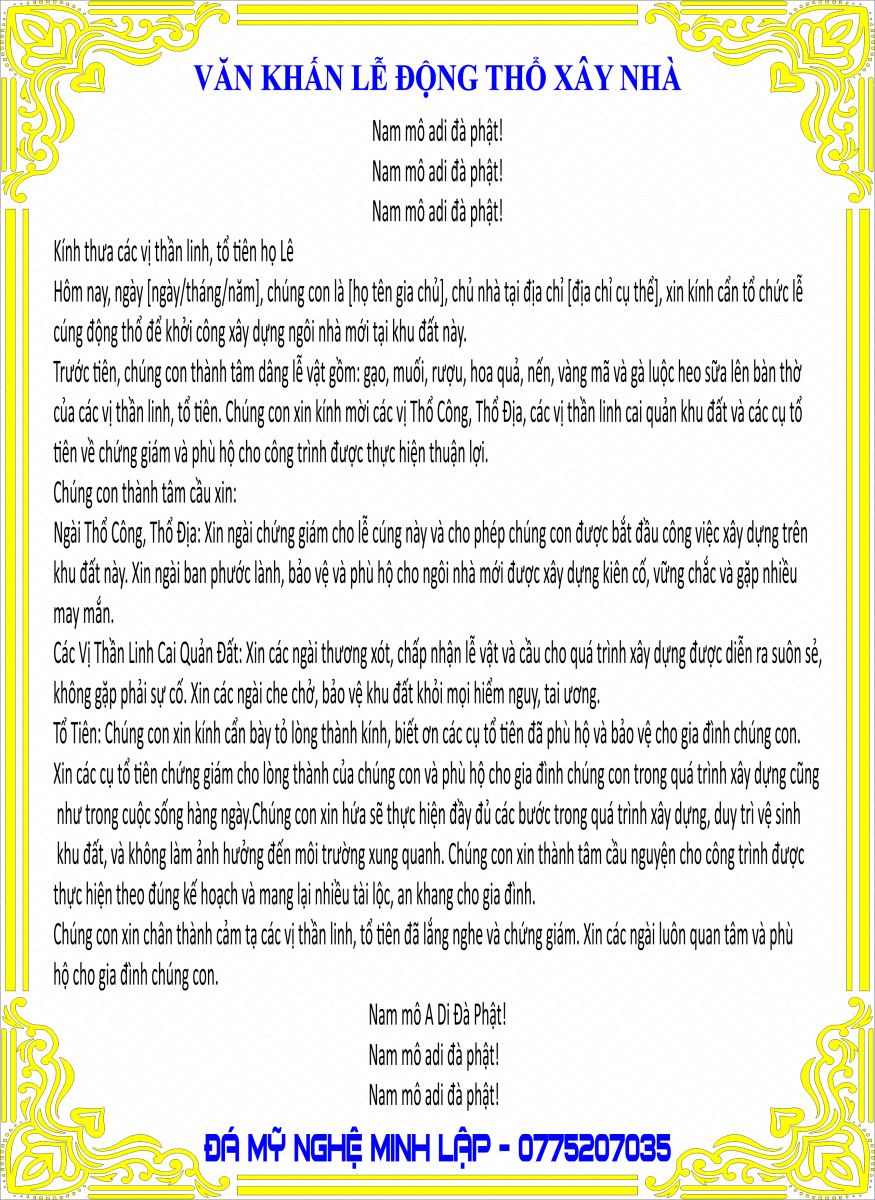 VĂN KHẤN LỄ ĐỘNG THỔ XÂY NHÀ
Nam mô adi đà phật!
Nam mô adi đà phật!
Nam mô adi đà phật!
Kính thưa các vị thần linh, tổ tiên họ Lê
Hôm nay, ngày [ngày/tháng/năm], chúng con là [họ tên gia chủ], chủ nhà tại địa chỉ [địa chỉ cụ thể], xin kính cẩn tổ chức lễ
cúng động thổ để khởi công xây dựng ngôi nhà mới tại khu đất này.
Trước tiên, chúng con thành tâm dâng lễ vật gồm: gạo, muối, rượu, hoa quả, nến, vàng mã và gà luộc heo sữa lên bàn thờ
của các vị thần linh, tổ tiên. Chúng con xin kính mời các vị Thổ Công, Thổ Địa, các vị thần linh cai quản khu đất và các cụ tổ
tiên về chứng giám và phù hộ cho công trình được thực hiện thuận lợi.
Chúng con thành tâm cầu xin:
Ngài Thổ Công, Thổ Địa: Xin ngài chứng giám cho lễ cúng này và cho phép chúng con được bắt đầu công việc xây dựng trên
khu đất này. Xin ngài ban phước lành, bảo vệ và phù hộ cho ngôi nhà mới được xây dựng kiên cố, vững chắc và gặp nhiều
may mắn.
Các Vị Thần Linh Cai Quản Đất: Xin các ngài thương xót, chấp nhận lễ vật và cầu cho quá trình xây dựng được diễn ra suôn sẻ,
không gặp phải sự cố. Xin các ngài che chở, bảo vệ khu đất khỏi mọi hiểm nguy, tai ương.
Tổ Tiên: Chúng con xin kính cẩn bày tỏ lòng thành kính, biết ơn các cụ tổ tiên đã phù hộ và bảo vệ cho gia đình chúng con.
Xin các cụ tổ tiên chứng giám cho lòng thành của chúng con và phù hộ cho gia đình chúng con trong quá trình xây dựng cũng
như trong cuộc sống hàng ngày.Chúng con xin hứa sẽ thực hiện đầy đủ các bước trong quá trình xây dựng, duy trì vệ sinh
khu đất, và không làm ảnh hưởng đến môi trường xung quanh. Chúng con xin thành tâm cầu nguyện cho công trình được
thực hiện theo đúng kế hoạch và mang lại nhiều tài lộc, an khang cho gia đình.
Chúng con xin chân thành cảm tạ các vị thần linh, tổ tiên đã lắng nghe và chứng giám. Xin các ngài luôn quan tâm và phù
hộ cho gia đình chúng con.
Nam mô A Di Đà Phật!
Nam mô adi đà phật!
Nam mô adi đà phật!
ĐÁ MỸ NGHỆ MINH LẬP - 0775207035